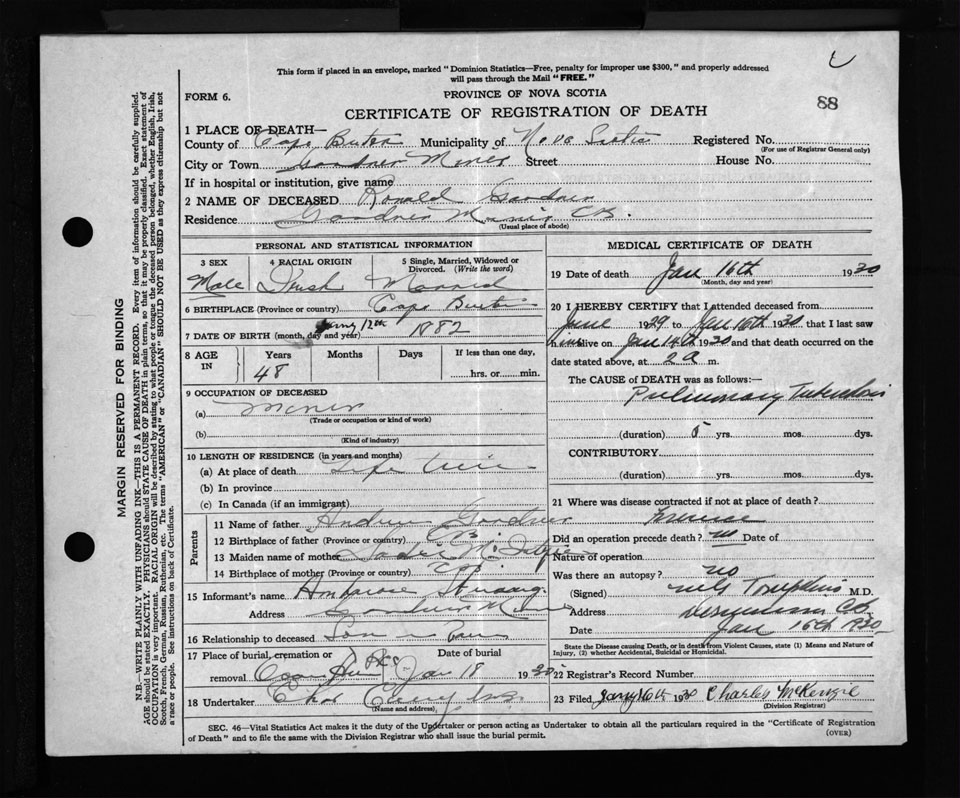 This form if placed in an envelope, marked "Dominion Statistics—Free, penalty for improper use $300," and properly addressed
will pass through the Mail "FREE."
FORM 6.
PROVINCE OF NOVA SCOTIA
88
CERTIFICATE OF REGISTRATION OF DEATH
1 PLACE OF DEATH—
County of Cape Breton Municipality of Nova Scotia Registered No.
(For use of Registrar General only)
City or Town Gardner Mines Street House No.
If in hospital or institution, give name
2 NAME OF DECEASED Ronald Gardner
Residence Gardner Mines CB.
(Usual place of abode)
PERSONAL AND STATISTICAL INFORMATION
3 SEX 4 RACIAL ORIGIN 5 Single, Married, Widowed or Divorced. (Write the word)
Male Irish Married
6 BIRTHPLACE (Province or country) Cape Breton
7 DATE OF BIRTH (month, day and year) 12th 1882
8 AGE IN Years Months Days If less than one day,
48 hrs. or min.
9 OCCUPATION OF DECEASED
(a) Miner
(Trade or occupation or kind of work)
(b)
(Kind of industry)
10 LENGTH OF RESIDENCE (in years and months)
(a) At place of death Life
(b) In province
(c) In Canada (if an immigrant)
Parents
11 Name of father Andrew Gardner
12 Birthplace of father (Province or country) CB
13 Maiden name of mother
14 Birthplace of mother (Province or country) CB
15 Informant's name
Address Gardner Mines
16 Relationship to deceased Son in
17 Place of burial, cremation or removal Date of burial
Jan 18 1930
18 Undertaker
(Name and address)
MEDICAL CERTIFICATE OF DEATH
19 Date of death Jan 16th 1930
(Month, day and year)
20 I HEREBY CERTIFY that I attended deceased from
June 1929 to Jan 16th 1930, that I last saw
him alive on Jan 14th 1930 and that death occurred on the
date stated above, at 2 a m.
The CAUSE OF DEATH was as follows:—
Pulmonary Tuberculosis
(duration) 5 yrs. mos. dys.
CONTRIBUTORY
(duration) yrs. mos. dys.
21 Where was disease contracted if not at place of death?
Did an operation precede death? no Date of
Nature of operation
Was there an autopsy? no
(Signed) Tompkins M.D.
Address CB.
Date Jan 16th 1930
State the Disease causing Death, or in death from Violent Causes, state (1) Means and Nature of
Injury, (2) whether Accidental, Suicidal or Homicidal.
22 Registrar's Record Number
23 Filed Jany 16th 1930 Charles McKenzie
(Division Registrar)
SEC. 46—Vital Statistics Act makes it the duty of the Undertaker or person acting as Undertaker to obtain all the particulars required in the "Certificate of Registration
of Death" and to file the same with the Division Registrar who shall issue the burial permit.
(OVER)
MARGIN RESERVED FOR BINDING
N.B.—WRITE PLAINLY WITH UNFADING INK—THIS IS A PERMANENT RECORD. Every item of information should be carefully supplied.
AGE should be stated EXACTLY. PHYSICIANS should STATE CAUSE OF DEATH in plain terms, so that it may be properly classified. Exact statement of
OCCUPATION is very important. RACIAL ORIGIN will be described by stating to what people or tongue the deceased person belonged, whether English, Irish,
Scotch, French, German, Russian, Ruthenian, etc. The terms "AMERICAN" or "CANADIAN" SHOULD NOT BE USED as they express citizenship but not
a race or people. See instructions on back of Certificate.